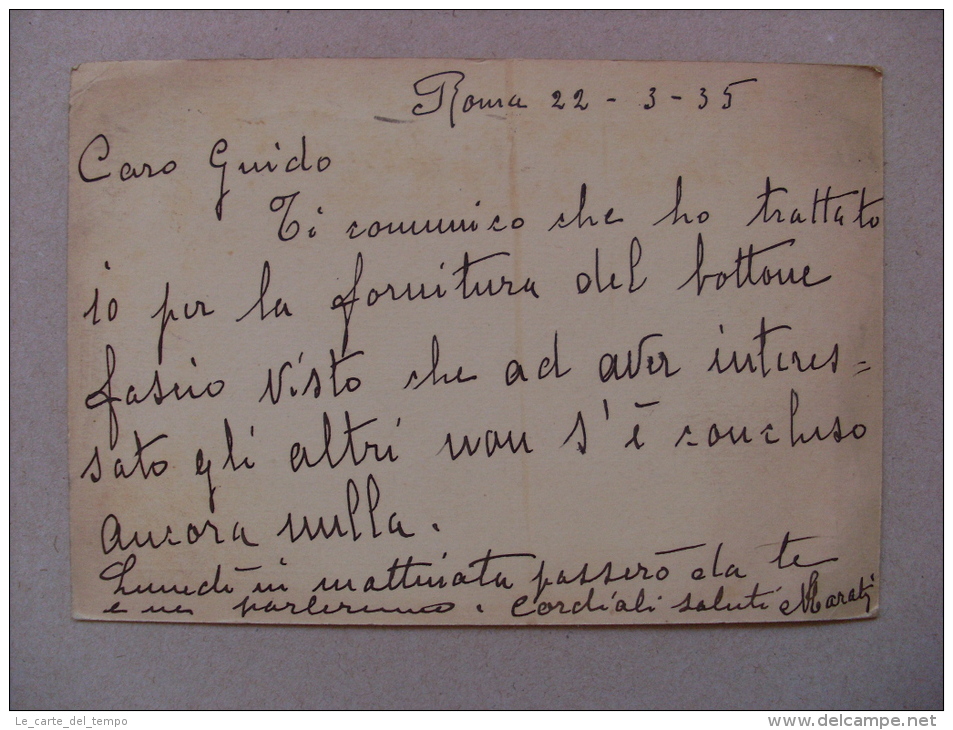 Roma 22 - 3 - 35
Caro Guido
Ti comunico che ho trattato
io per la fornitura del bottone
fascio visto che ad aver interes=
sato gli altri non s'è concluso
ancora nulla.
Lunedì in mattinata passerò da te
e ne parleremo. Cordiali saluti
Le_carte_del_tempo
www.delcampe.net